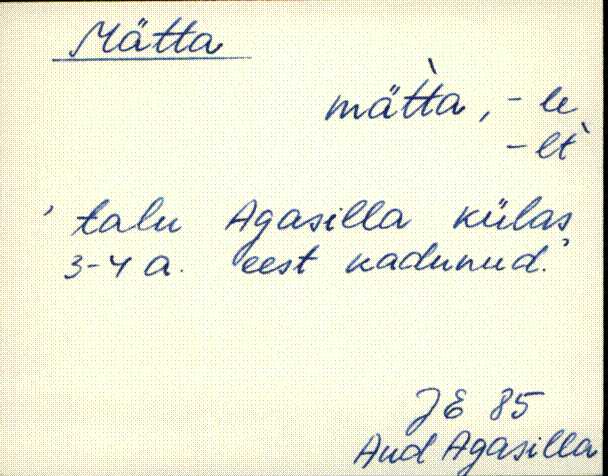 Mätta
mät̀ta, - le
- lt̀
' talu Agasilla külas
3-4 a. eest kadunud.'
JE 85
Aud Agasilla